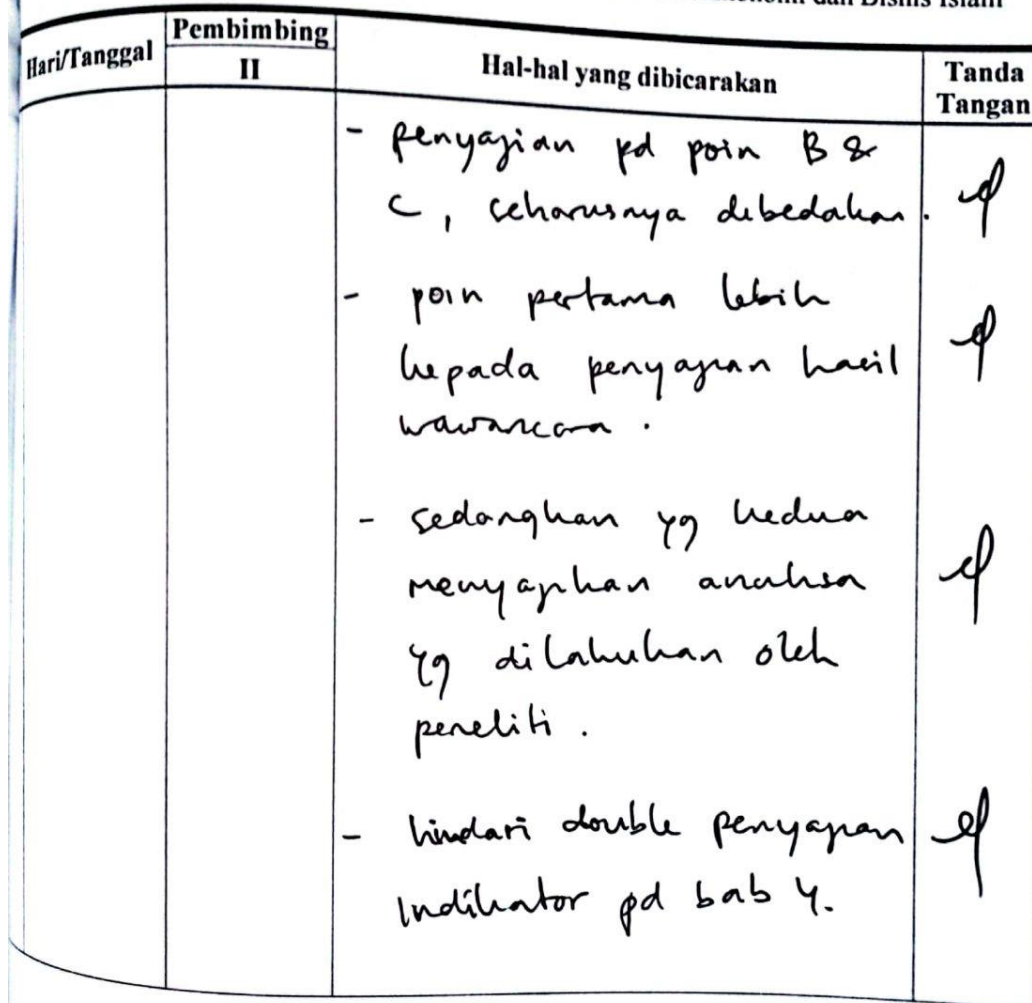 dan Bisnis Islam
Hari/Tanggal
Pembimbing
II
Hal-hal yang dibicarakan
Tanda
Tangan
- penyajian pd poin B &
C, seharusnya dibedakan.
- poin pertama lebih
kepada penyajian hasil
wawancara.
- sedangkan yg kedua
menyajikan analisa
yg dilakukan oleh
peneliti.
- hindari double penyajian
Indikator pd bab 4.